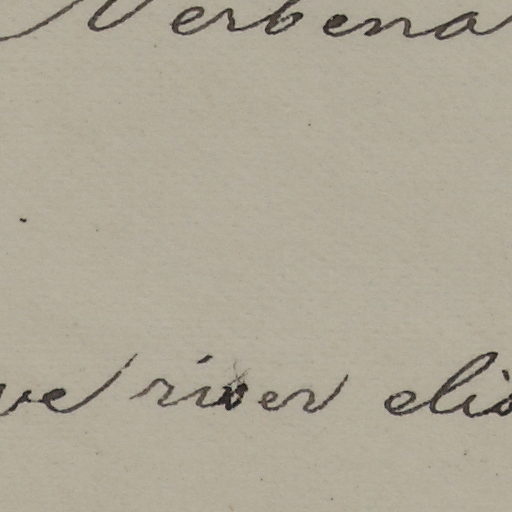 Verbena
ve river clio